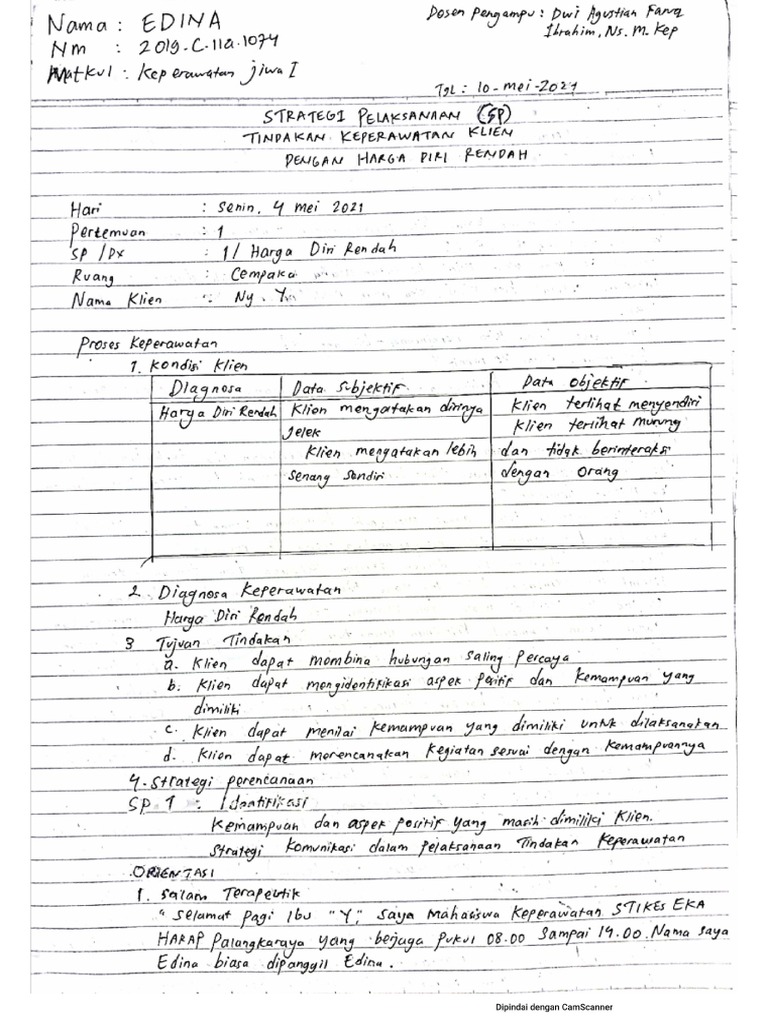 Nama : EDINA
Dosen Pengampu : Dwi Agustian Faruq
Ibrahim, Ns. M. Kep
Nm : 2019.C.11a.1074
Matkul : Keperawatan jiwa I
Tgl : 10-mei-2021
STRATEGI PELAKSANAAN (SP)
TINDAKAN KEPERAWATAN KLIEN
DENGAN HARGA DIRI RENDAH
Hari : Senin, 4 mei 2021
Pertemuan : 1
SP / Dx : 1 / Harga Diri Rendah
Ruang : Cempaka
Nama Klien : Ny. Y
Proses Keperawatan
1. Kondisi Klien
Diagnosa Data Subjektif Data Objektif
Harga Diri Rendah Klien mengatakan dirinya Klien terlihat menyendiri
jelek Klien terlihat murung
Klien mengatakan lebih dan tidak berinteraksi
senang sendiri dengan orang
2. Diagnosa Keperawatan
Harga Diri Rendah
3 Tujuan Tindakan
a. Klien dapat membina hubungan saling percaya
b. Klien dapat mengidentifikasi aspek positif dan kemampuan yang
dimiliki
c. Klien dapat menilai kemampuan yang dimiliki untuk dilaksanakan
d. Klien dapat merencanakan kegiatan sesuai dengan kemampuannya
4. Strategi perencanaan
SP 1 : Identifikasi
Kemampuan dan aspek positif yang masih dimiliki Klien.
Strategi komunikasi dalam pelaksanaan Tindakan Keperawatan
ORIENTASI
1. Salam Terapeutik
"Selamat pagi Ibu "Y", saya Mahasiswa Keperawatan STIKES EKA
HARAP Palangkaraya yang berjaga pukul 08.00 Sampai 14.00. Nama saya
Edina biasa dipanggil Edina.
Dipindai dengan CamScanner